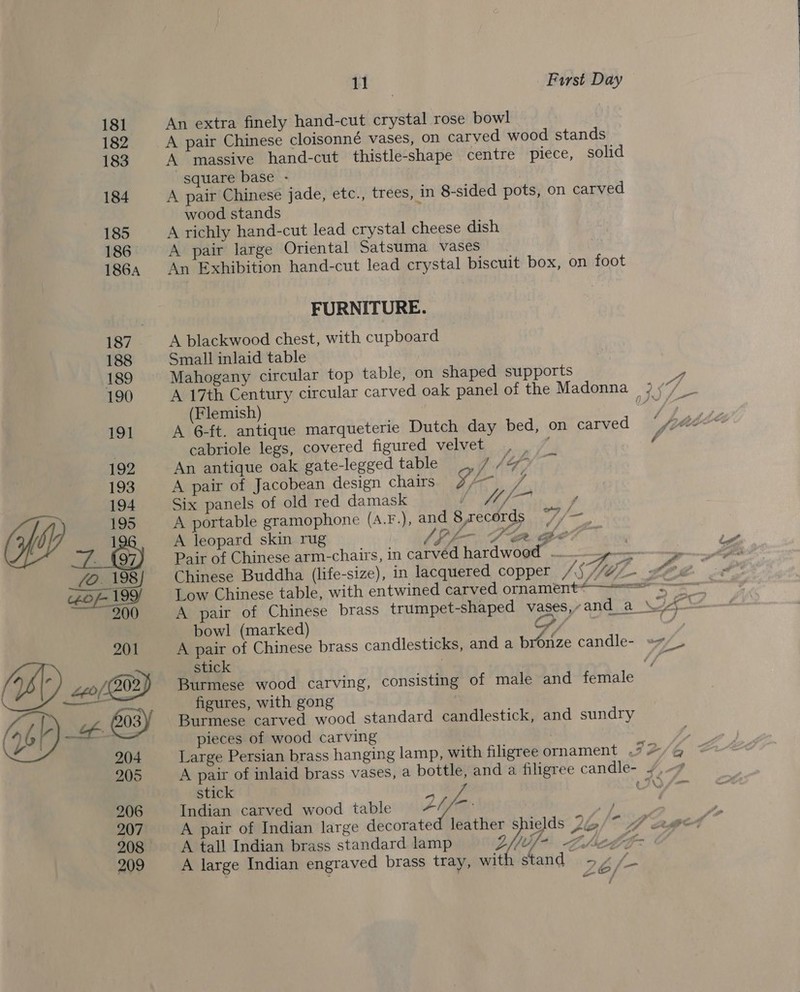 11 First Day
181 An extra finely hand-cut crystal rose bowl
182 A pair Chinese cloisonné vases, on carved wood stands
183 A massive hand-cut thistle-shape centre piece, solid
square base -
184 A pair Chinese jade, etc., trees, in 8-sided pots, on carved
wood stands
185 A richly hand-cut lead crystal cheese dish
186 A pair large Oriental Satsuma vases
186A An Exhibition hand-cut lead crystal biscuit box, on foot
FURNITURE.
187 A blackwood chest, with cupboard
188 Small inlaid table
189 Mahogany circular top table, on shaped supports
190 A 17th Century circular carved oak panel of the Madonna
(Flemish)
191 A 6-ft. antique marqueterie Dutch day bed, on carved
cabriole legs, covered figured velvet
192 An antique oak gate-legged table
193 A pair of Jacobean design chairs
194 Six panels of old red damask
195 A portable gramophone (A.F.), and 8 records
196 A leopard skin rug
197 Pair of Chinese arm-chairs, in carved hardwood
198 Chinese Buddha (life-size), in lacquered copper
199 Low Chinese table, with entwined carved ornament
200 A pair of Chinese brass trumpet-shaped vases, and a
bowl (marked)
201 A pair of Chinese brass candlesticks, and a bronze candle-
stick
202 Burmese wood carving, consisting of male and female
figures, with gong
203 Burmese carved wood standard candlestick, and sundry
pieces of wood carving
204 Large Persian brass hanging lamp, with filigree ornament
205 A pair of inlaid brass vases, a bottle, and a filigree candle-
stick
206 Indian carved wood table
207 A pair of Indian large decorated leather shields
208 A tall Indian brass standard lamp
209 A large Indian engraved brass tray, with stand 26/-